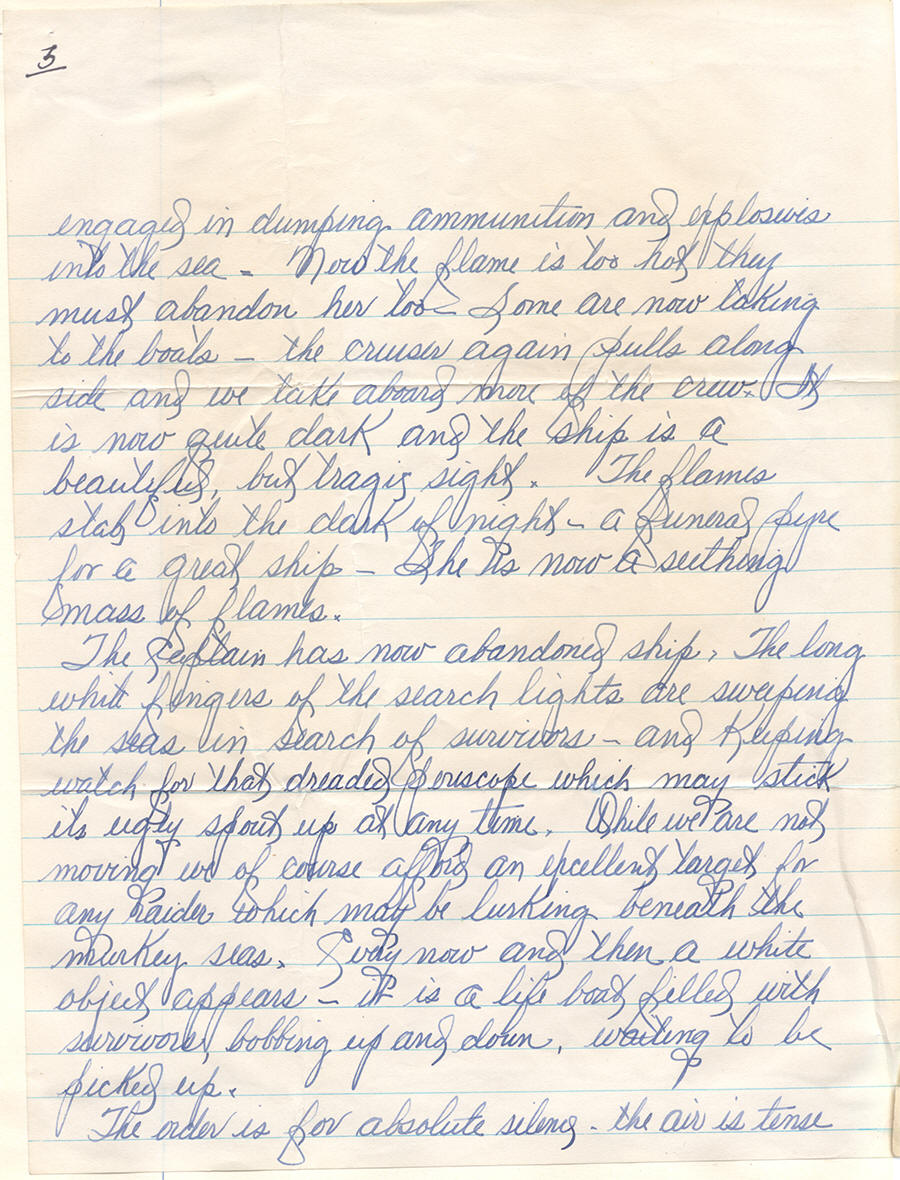 3
engaged in dumping ammunition and explosives
into the sea - Now the flame is too hot, they
must abandon her too - Some are now taking
to the boats - the cruiser again pulls along
side and we take aboard more of the crew. It
is now quite dark and the ship is a
beautiful, but tragic sight. The flames
stab into the dark of night - a funeral pyre
for a great ship - She is now a seething
mass of flames.
The Captain has now abandoned ship, The long
white fingers of the search lights are sweeping
the seas in search of survivors - and keeping
watch for that dreaded periscope which may stick
its ugly spout up at any time. While we are not
moving we of course afford an excellent target for
any raider which may be lurking beneath the
murkey seas. Every now and then a white
object appears - it is a life boat filled with
survivors, bobbing up and down, waiting to be
picked up.
The order is for absolute silence - the air is tense